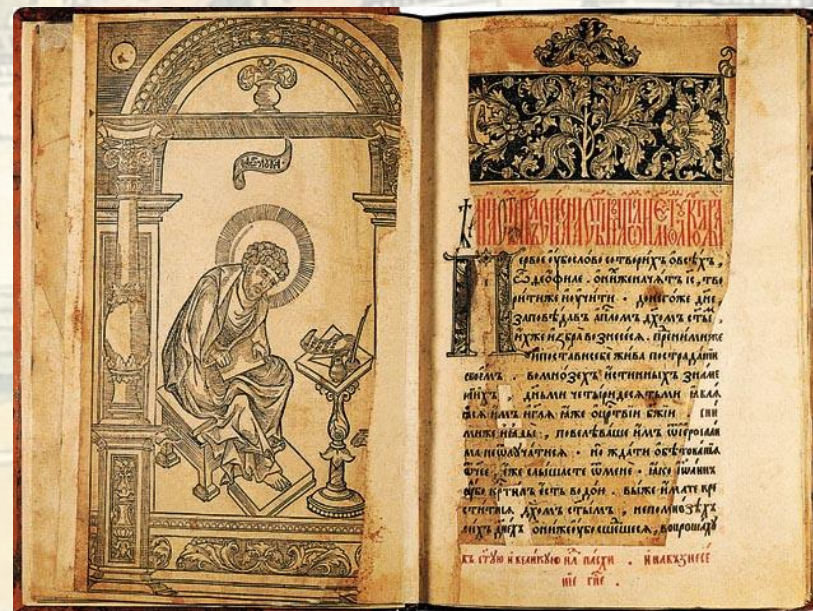 ЛꙊКА
Первое ѹбо слово сотворихъ о всѣхъ,
ѽ деофиле . о нихже начатъ іс҃, тво
рити же и ѹчити . донегоже дн҃е,
заповѣдавъ апⷭ҇ломъ дх҃омъ ст҃ыⷨ,
ихже избра вознесеся . пред ними же
и постави себе жива по страданїи
своемъ . во мнозехъ истинныхъ знаме
нїихъ , дньми четыридесятьми являя
ся имъ и гл҃я яже о црⷭ҇твїи бж҃їи . с ни
ми же и яды , повелѣваше имъ ѿ
ма не ѿлучатися . но ждати обѣтованїя
ѿчее , еже слышасте ѿ мене . яко іѡаннъ
ѹбо крⷭ҇тилъ есть водою . вы же имате кре
ститися дх҃омъ ст҃ымъ , не по мнозѣхъ
сихъ днехъ они же ѹбо сшедшеся , вопрошаху
въ ст҃ую и великую нⷣ҇лю пасхи . и на възнесе
нїе гн҃е .